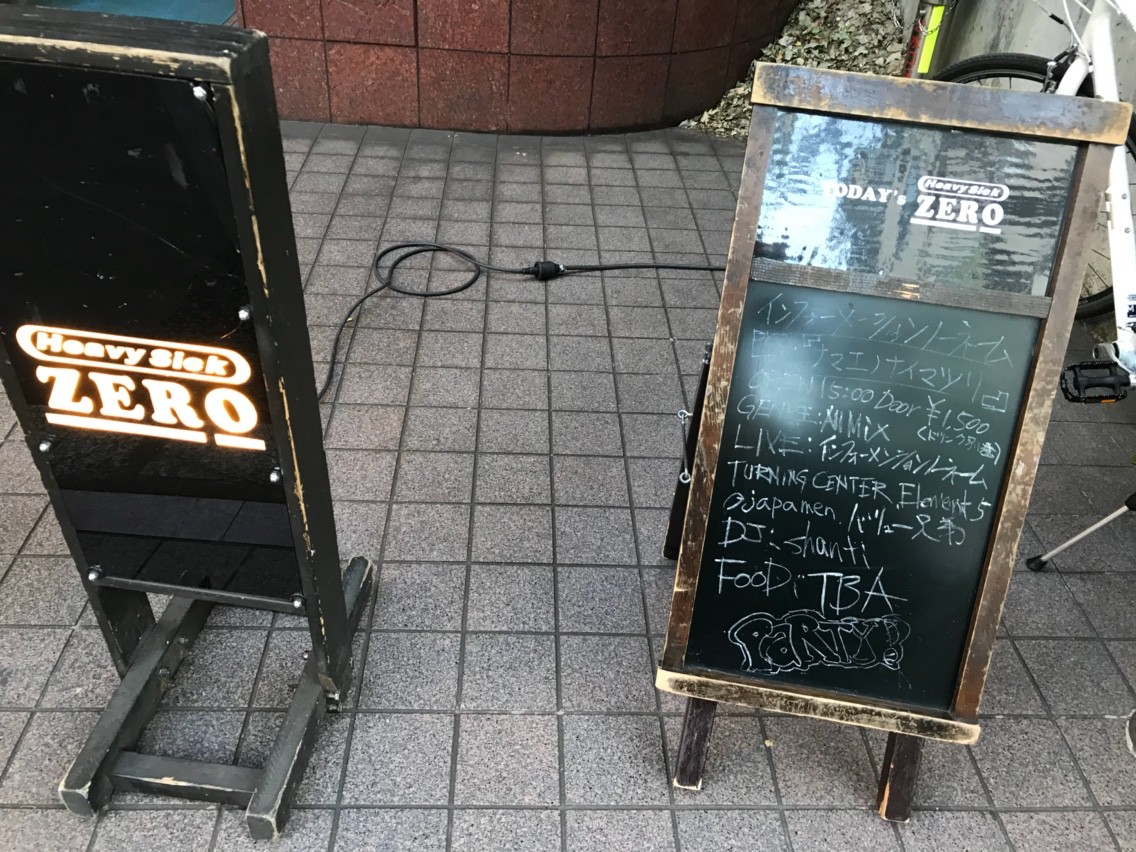 Heavy Sick
ZERO
TODAY's Heavy Sick ZERO
インフォーメーションレネーム
ナイマツリ
OPEN 15:00 Door ¥1,500
GENRE: All MiX (ドリンク別
LIVE: インフォーメーションレネーム
TURNING CENTER, Element 5
Ojapamen, バリュー兄弟
DJ: shanti
FOOD: TBA
PARTY!!